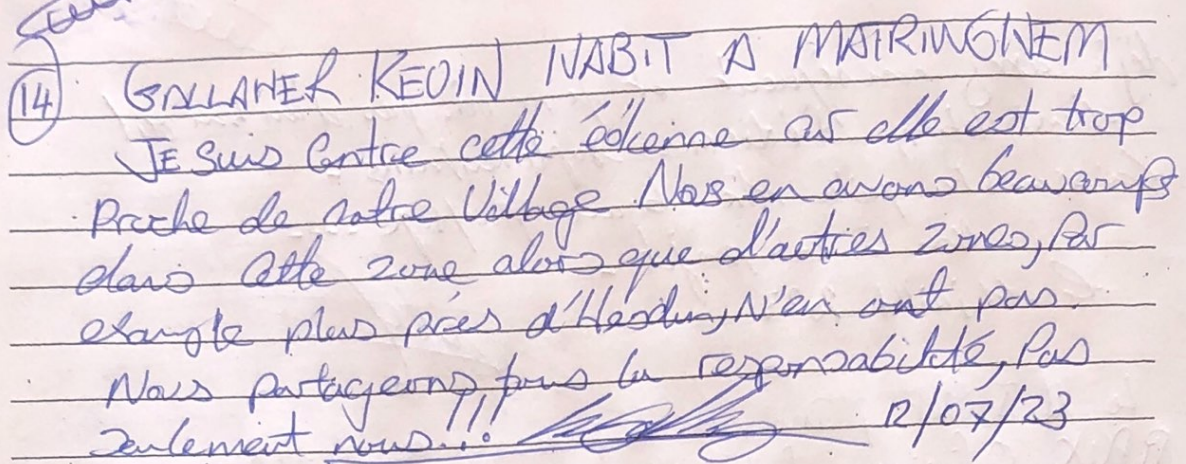 14 GALLAHER KEVIN HABIT A MATRINGHEM
JE Suis Contre cette éolienne car elle est trop
Proche de notre Village Nous en avons beaucoups
dans Cette zone alors que d'autres zones, Par
example plus près d'Hesdin, N'en ont pas.
Nous partageons tous la responsabilité, Pas
seulement nous!!! 12/07/23